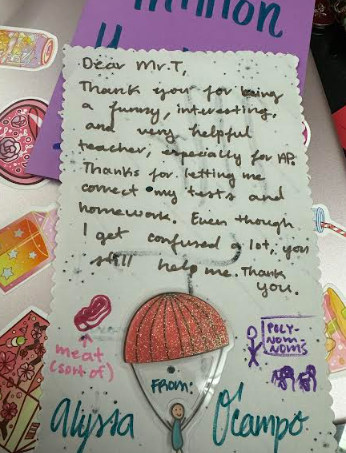 Dear Mr.T,
Thank you for being
a funny, interesting,
and very helpful
teacher, especially for AP.
Thanks for letting me
correct my tests and
homework. Even though
I get confused a lot, you
still help me. Thank
you
POLY-
NOM
NOMS
meat
(sort of)
FROM:
Alyssa O'campo